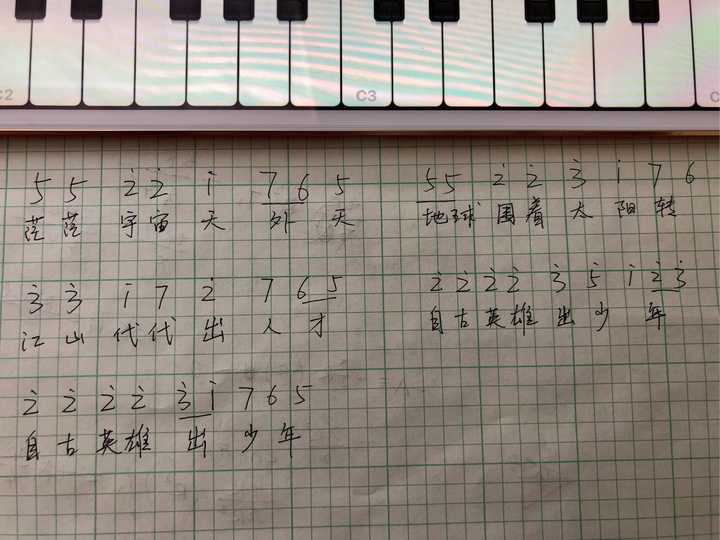 C2 C3 C
5 5 2̇ 2̇ 1̇ 7 6 5 5 5 2̇ 2̇ 3̇ 1̇ 7 6
茫 茫 宇 宙 天 外 天 地球 围 着 太 阳 转
3̇ 3̇ 1̇ 7 2̇ 7 6 5 2̇ 2̇ 2̇ 2̇ 3̇ 5̇ 1̇ 2̇ 3̇
江 山 代 代 出 人 才 自 古 英 雄 出 少 年
2̇ 2̇ 2̇ 2̇ 3̇ 1̇ 7 6 5
自 古 英 雄 出 少 年